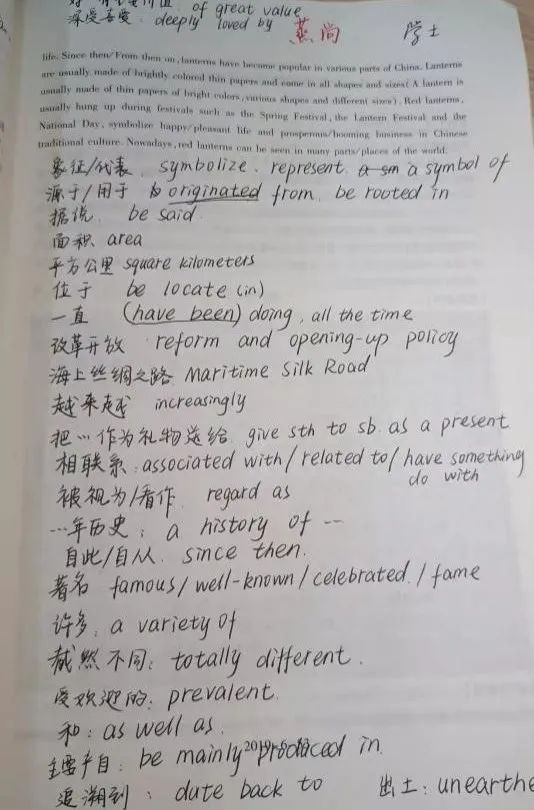 好 有重要价值 of great value
深受喜爱: deeply loved by 燕尚 学士
life. Since then/From then on, lanterns have become popular in various parts of China. Lanterns
are usually made of brightly colored thin papers and come in all shapes and sizes(A lantern is
usually made of thin papers of bright colors, various shapes and different sizes). Red lanterns,
usually hung up during festivals such as the Spring Festival, the Lantern Festival and the
National Day, symbolize happy/pleasant life and prosperous/booming business in Chinese
traditional culture. Nowadays, red lanterns can be seen in many parts/places of the world.
象征/代表. symbolize. represent. a symbol of
源于/用于 originated from. be rooted in
据说. be said.
面积 area
平方公里 square kilometers
位于 be locate (in)
一直 (have been) doing. all the time
改革开放 reform and opening-up policy
海上丝绸之路 Maritime Silk Road
越来越 increasingly
把…作为礼物送给. give sth to sb. as a present
相联系: associated with/related to/have something
do with
被视为/看作. regard as
…年历史: a history of …
自此/自从. since then.
著名 famous/well-known/celebrated./fame
许多: a variety of
截然不同: totally different.
受欢迎的: prevalent.
和: as well as.
主要产自: be mainly produced in.
追溯到: date back to 出土: unearthe